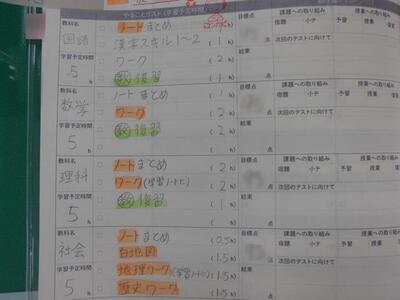 やることリスト(学習予定時間)
教科名 国語
ノートまとめ
漢字スキル1〜2 (1h)
ワーク (2h)
教 復習 (1h)
学習予定時間 5h
目標点 点
結果
課題への取り組み 宿題 小テ
授業への取り組み 予習 授業
次回のテストに向けて
教科名 数学
ノートまとめ (1h)
ワーク (2h)
教 復習 (2h)
学習予定時間 5h
目標点 点
結果
課題への取り組み 宿題 小テ
授業への取り組み 予習 授業 宿
次回のテストに向けて
教科名 理科
ノートまとめ (2h)
ワーク(学習ノートに) (2h)
教 復習 (1h)
学習予定時間 5h
目標点 点
結果
課題への取り組み 宿題 小テ
授業への取り組み 予習 授業
次回のテストに向けて
教科名 社会
ノートまとめ (0.5h)
白地図 (1.5h)
地理ワーク(学習ノートに) (1.5h)
歴史ワーク (1.5h)
学習予定時間 5h
目標点 点
結果
課題への取り組み 宿題 小テ
授業への取り組み 予習 授業
次回のテストに向けて